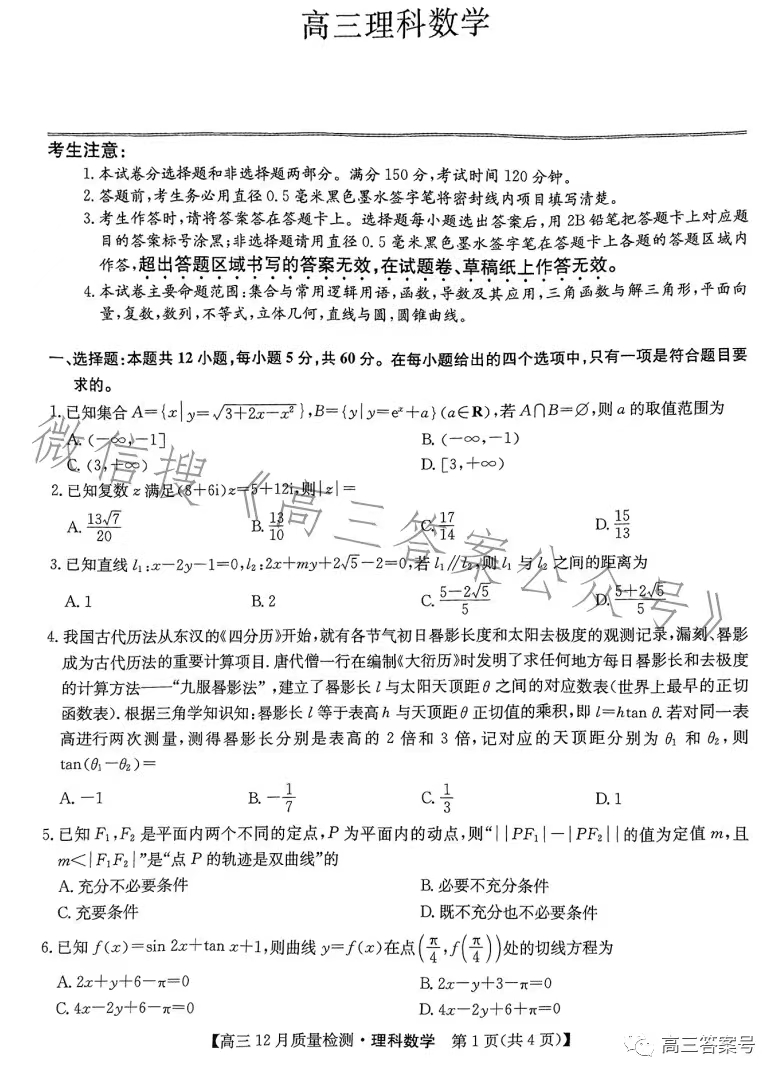 高三理科数学
考生注意:
1. 本试卷分选择题和非选择题两部分。满分 150 分,考试时间 120 分钟。
2. 答题前,考生务必用直径 0.5 毫米黑色墨水签字笔将密封线内项目填写清楚。
3. 考生作答时,请将答案答在答题卡上。选择题每小题选出答案后,用 2B 铅笔把答题卡上对应题
目的答案标号涂黑;非选择题请用直径 0.5 毫米黑色墨水签字笔在答题卡上各题的答题区域内
作答,超出答题区域书写的答案无效,在试题卷、草稿纸上作答无效。
4. 本试卷主要命题范围:集合与常用逻辑用语,函数,导数及其应用,三角函数与解三角形,平面向
量,复数,数列,不等式,立体几何,直线与圆,圆锥曲线。
一、选择题:本题共 12 小题,每小题 5 分,共 60 分。在每小题给出的四个选项中,只有一项是符合题目要
求的。
1. 已知集合 A={x|y=√(3+2x-x²)},B={y|y=eˣ+a}(a∈R),若 A∩B=∅,则 a 的取值范围为
A. (-∞,-1] B. (-∞,-1)
C. (3,+∞) D. [3,+∞)
2. 已知复数 z 满足(8+6i)z=5+12i,则|z|=
A. 13√7/20 B. 13/10 C. 17/14 D. 15/13
3. 已知直线 l₁:x-2y-1=0,l₂:2x+my+2√5-2=0,若 l₁∥l₂,则 l₁ 与 l₂ 之间的距离为
A. 1 B. 2 C. (5-2√5)/5 D. (5+2√5)/5
4. 我国古代历法从东汉的《四分历》开始,就有各节气初日晷影长度和太阳去极度的观测记录,漏刻、晷影
成为古代历法的重要计算项目. 唐代僧一行在编制《大衍历》时发明了求任何地方每日晷影长和去极度
的计算方法——“九服晷影法”,建立了晷影长 l 与太阳天顶距 θ 之间的对应数表(世界上最早的正切
函数表). 根据三角学知识知:晷影长 l 等于表高 h 与天顶距 θ 正切值的乘积,即 l=htan θ. 若对同一表
高进行两次测量,测得晷影长分别是表高的 2 倍和 3 倍,记对应的天顶距分别为 θ₁ 和 θ₂,则
tan(θ₁-θ₂)=
A. -1 B. -1/7 C. 1/3 D. 1
5. 已知 F₁,F₂ 是平面内两个不同的定点,P 为平面内的动点,则“||PF₁|-|PF₂||的值为定值 m,且
m<|F₁F₂|”是“点 P 的轨迹是双曲线”的
A. 充分不必要条件 B. 必要不充分条件
C. 充要条件 D. 既不充分也不必要条件
6. 已知 f(x)=sin 2x+tan x+1,则曲线 y=f(x)在点(π/4,f(π/4))处的切线方程为
A. 2x+y+6-π=0 B. 2x-y+3-π=0
C. 4x-2y+6-π=0 D. 4x-2y+6+π=0
【高三 12 月质量检测·理科数学 第 1 页(共 4 页)】
高三答案号
微信搜《高三答案公众号》